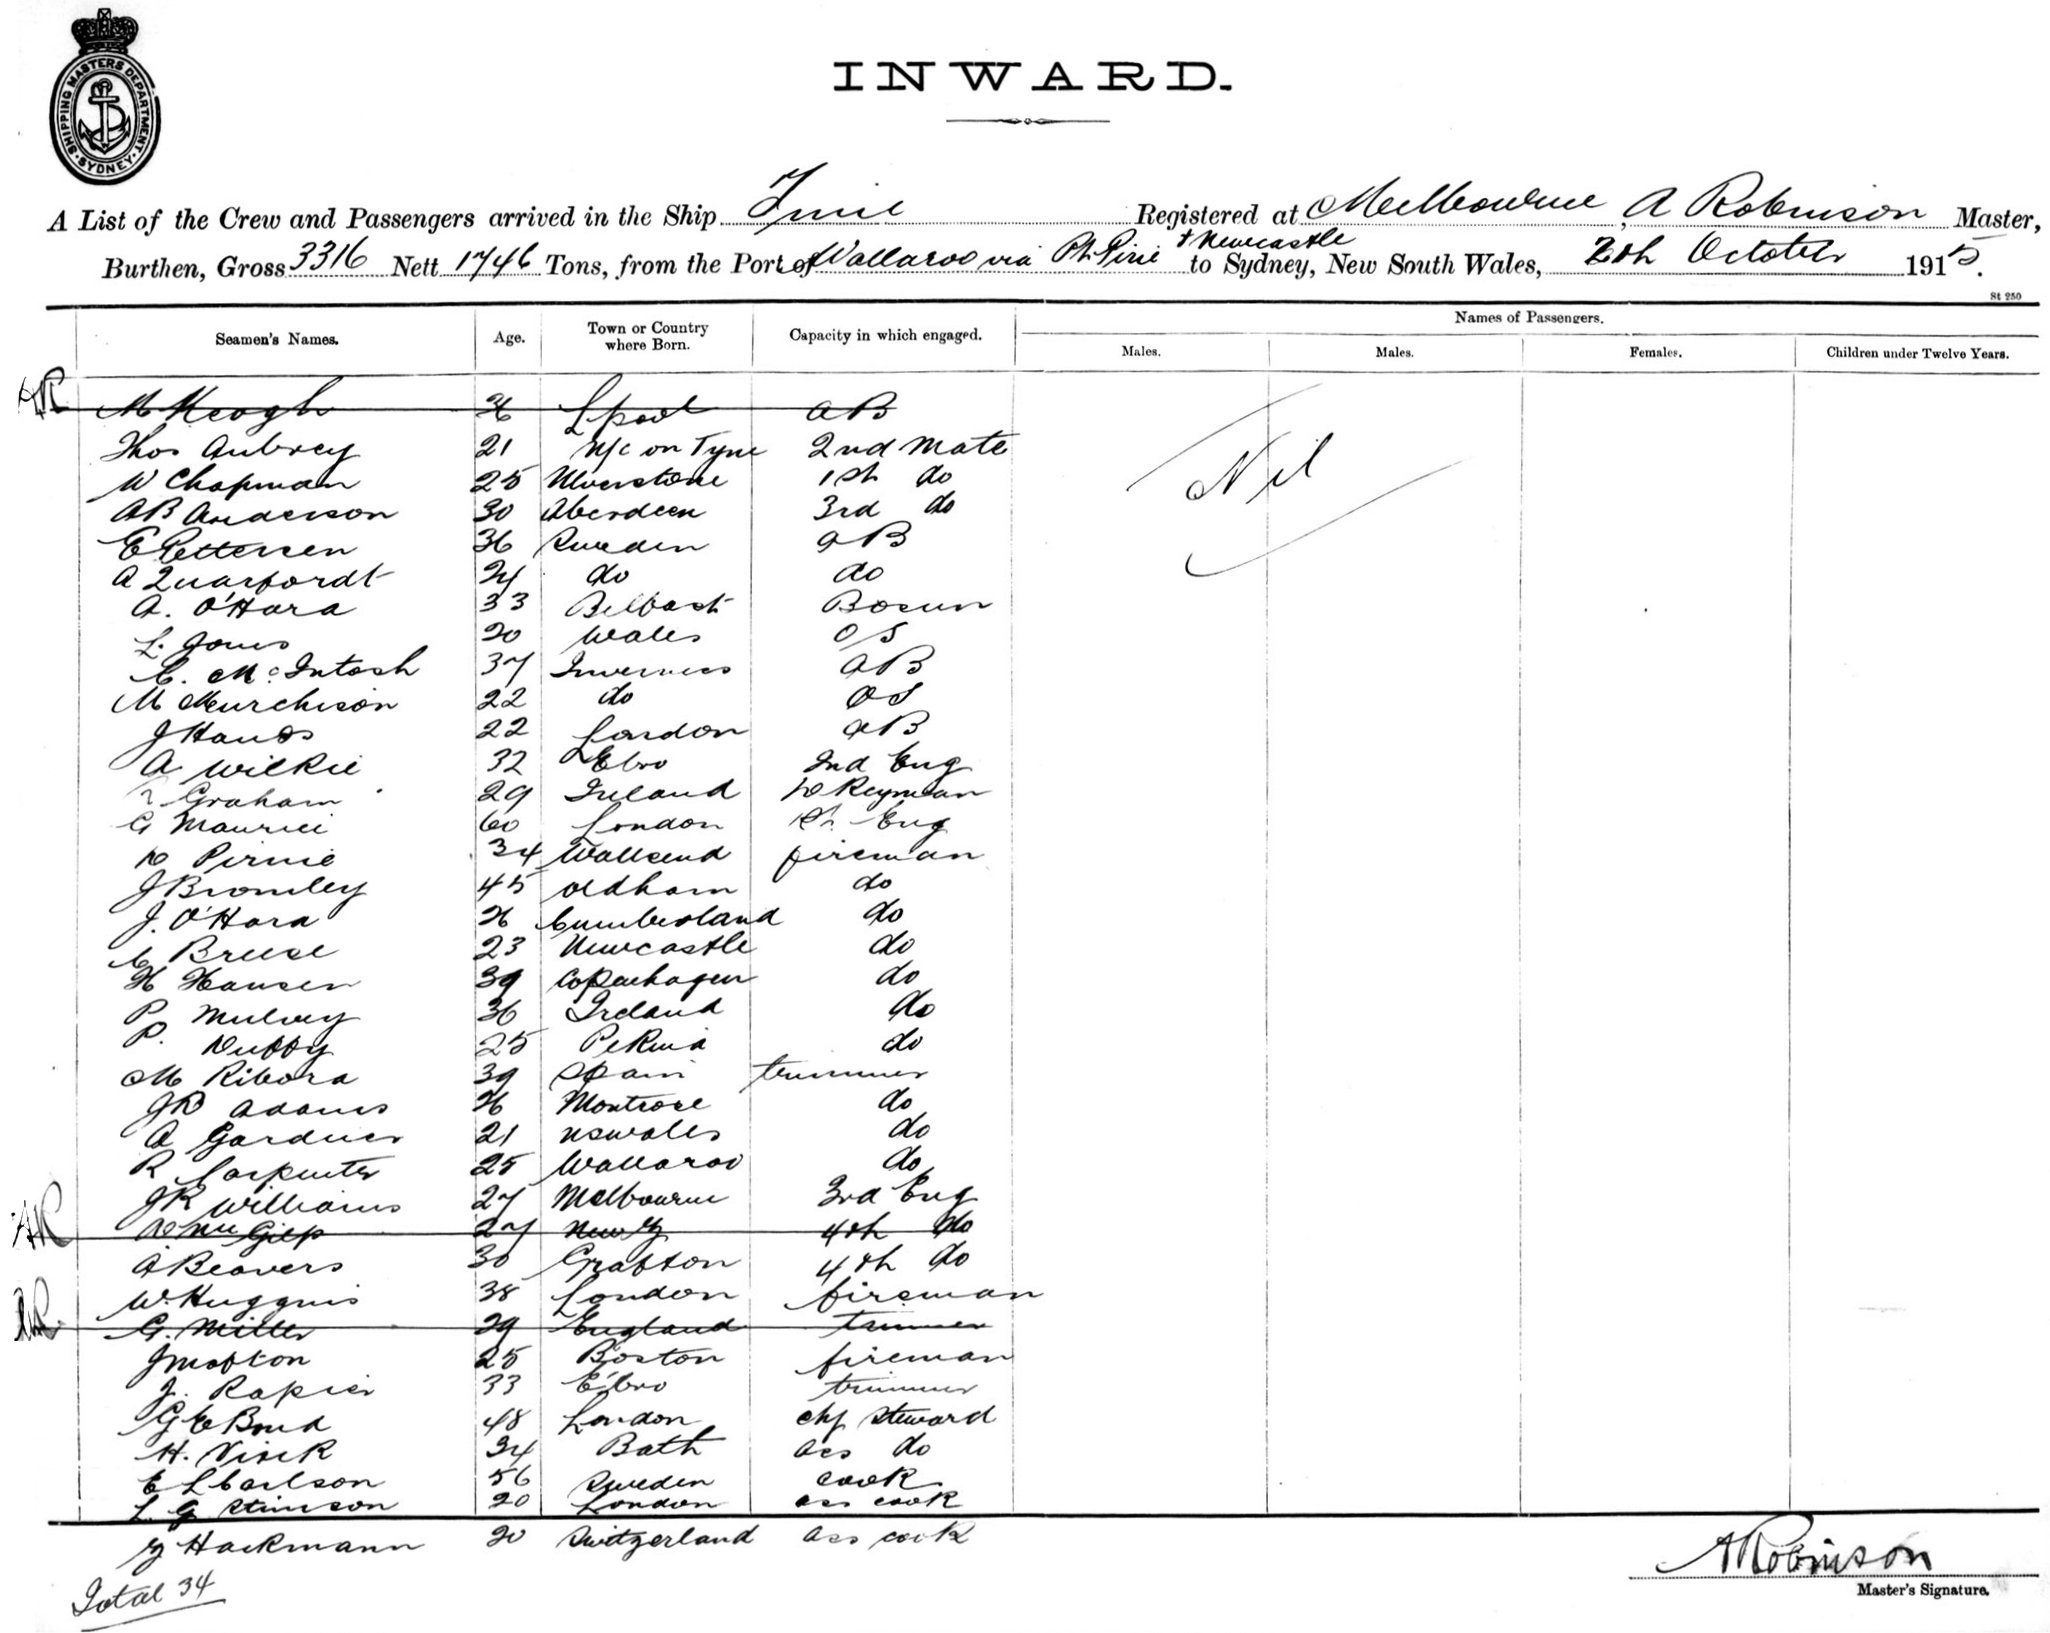 SHIPPING MASTERS DEPARTMENT. SYDNEY.
INWARD.
A List of the Crew and Passengers arrived in the Ship Registered at Melbourne, A Robinson Master,
Burthen, Gross 3316 Nett 1746 Tons, from the Port of Wallaroo via Pt. Pirie + Newcastle to Sydney, New South Wales, 2th October 1915.
St 250
Seamen's Names. Age. Town or Country where Born. Capacity in which engaged. Names of Passengers.
Males. Males. Females. Children under Twelve Years.
AR M Keogh 26 L'pool AB
Thos Aubrey 21 N/c on Tyne 2nd Mate
W Chapman 25 Ulverstone 1st do
AB Anderson 30 Aberdeen 3rd do
Nil
E Pettersen 36 Sweden AB
A Quarfordt 24 do do
A. O'Hara 33 Belfast Bosun
L. Jones 20 Wales OS
C. McIntosh 37 Inverness AB
M Murchison 22 do OS
J Hands 22 London AB
A Wilkie 32 E'bro 2nd Eng
Graham 29 Ireland Dkeyman
G Maurici 60 London 1st Eng
D Pirnie 34 Wallsend fireman
J Bromley 45 Oldham do
J. O'Hara 26 Cumberland do
C Breese 23 Newcastle do
H Hansen 39 Copenhagen do
P Mulvey 36 Ireland do
P. Duffy 25 do
M Ribora 39 Spain trimmer
JD Adams 26 Montrose do
A Gardner 21 NSWales do
R Carpenter 25 Wallaroo do
JR Williams 27 Melbourne 3rd Eng
AR D McGilp 27 New Z 4th do
A Beavers 30 Grafton 4th do
W. Huggins 38 London fireman
AR G. Miller 29 England trimmer
J Mofton 25 Boston fireman
J. Rapier 33 E'bro trimmer
G E Bond 48 London chf steward
H. Visick 34 Bath ass do
E L Carlson 56 Sweden cook
L. G Stimson 20 London ass cook
Hackmann 20 Switzerland ass cook
Total 34
A Robinson
Master's Signature.